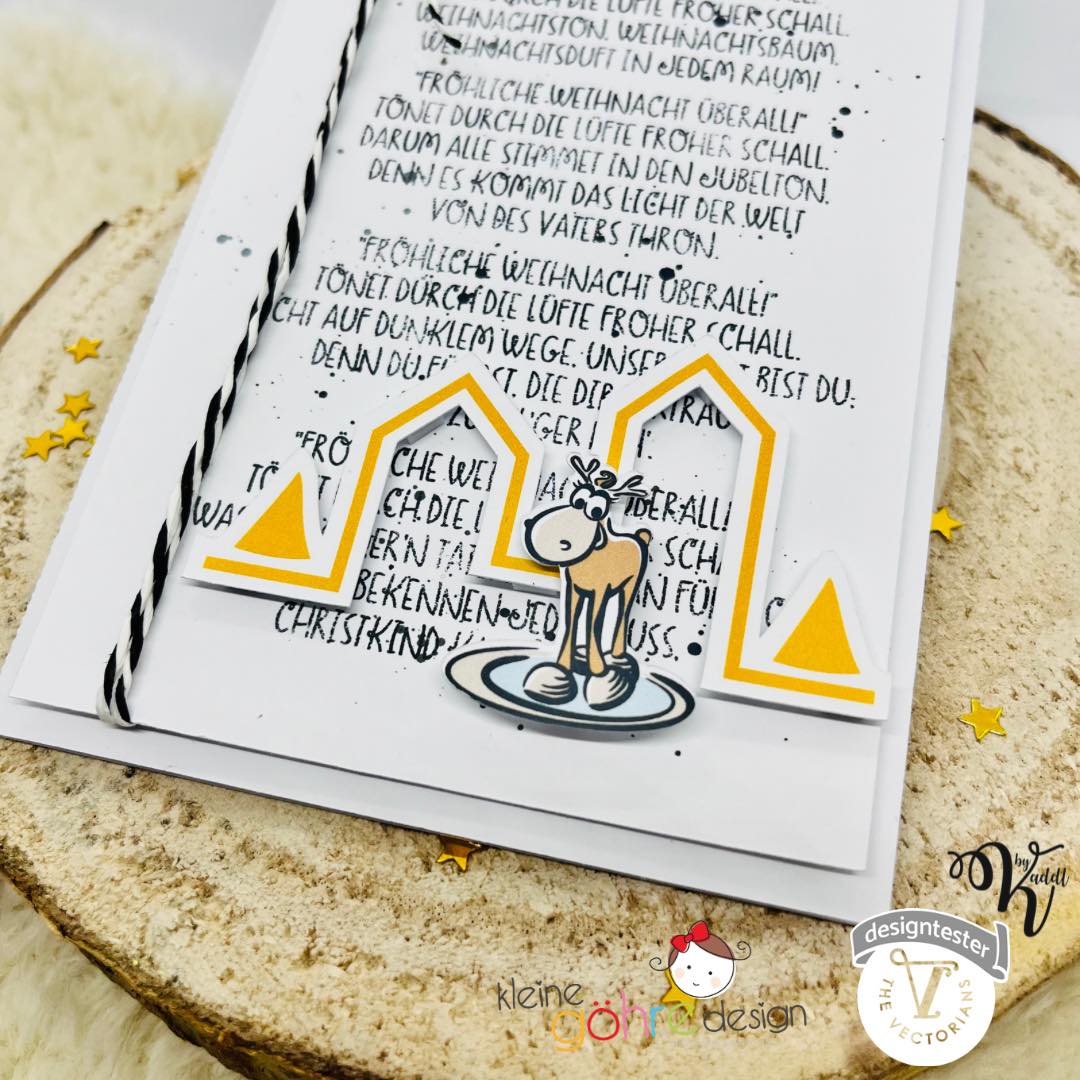 DURCH DIE LÜFTE FROHER SCHALL.
WEIHNACHTSTON, WEIHNACHTSBAUM,
WEIHNACHTSDUFT IN JEDEM RAUM!
"FRÖHLICHE WEIHNACHT ÜBERALL!"
TÖNET DURCH DIE LÜFTE FROHER SCHALL.
DARUM ALLE STIMMET IN DEN JUBELTON,
DENN ES KOMMT DAS LICHT DER WELT
VON DES VATERS THRON.
"FRÖHLICHE WEIHNACHT ÜBERALL!"
TÖNET DURCH DIE LÜFTE FROHER SCHALL.
CHT AUF DUNKLEM WEGE, UNSER BIST DU;
DENN DU DIE DIR
"FRÖ CHE WEI ÜBERALL!
DIE SCHA
BEKENNEN JED USS,
CHRISTKIND
by
Kaddl
designtester
THE VECTORIANS
kleine
göhre design